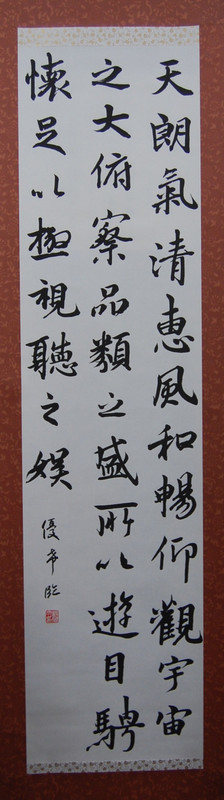 天朗氣清惠風和暢仰觀宇宙
之大俯察品類之盛所以遊目騁
懷足以極視聽之娛
優希臨